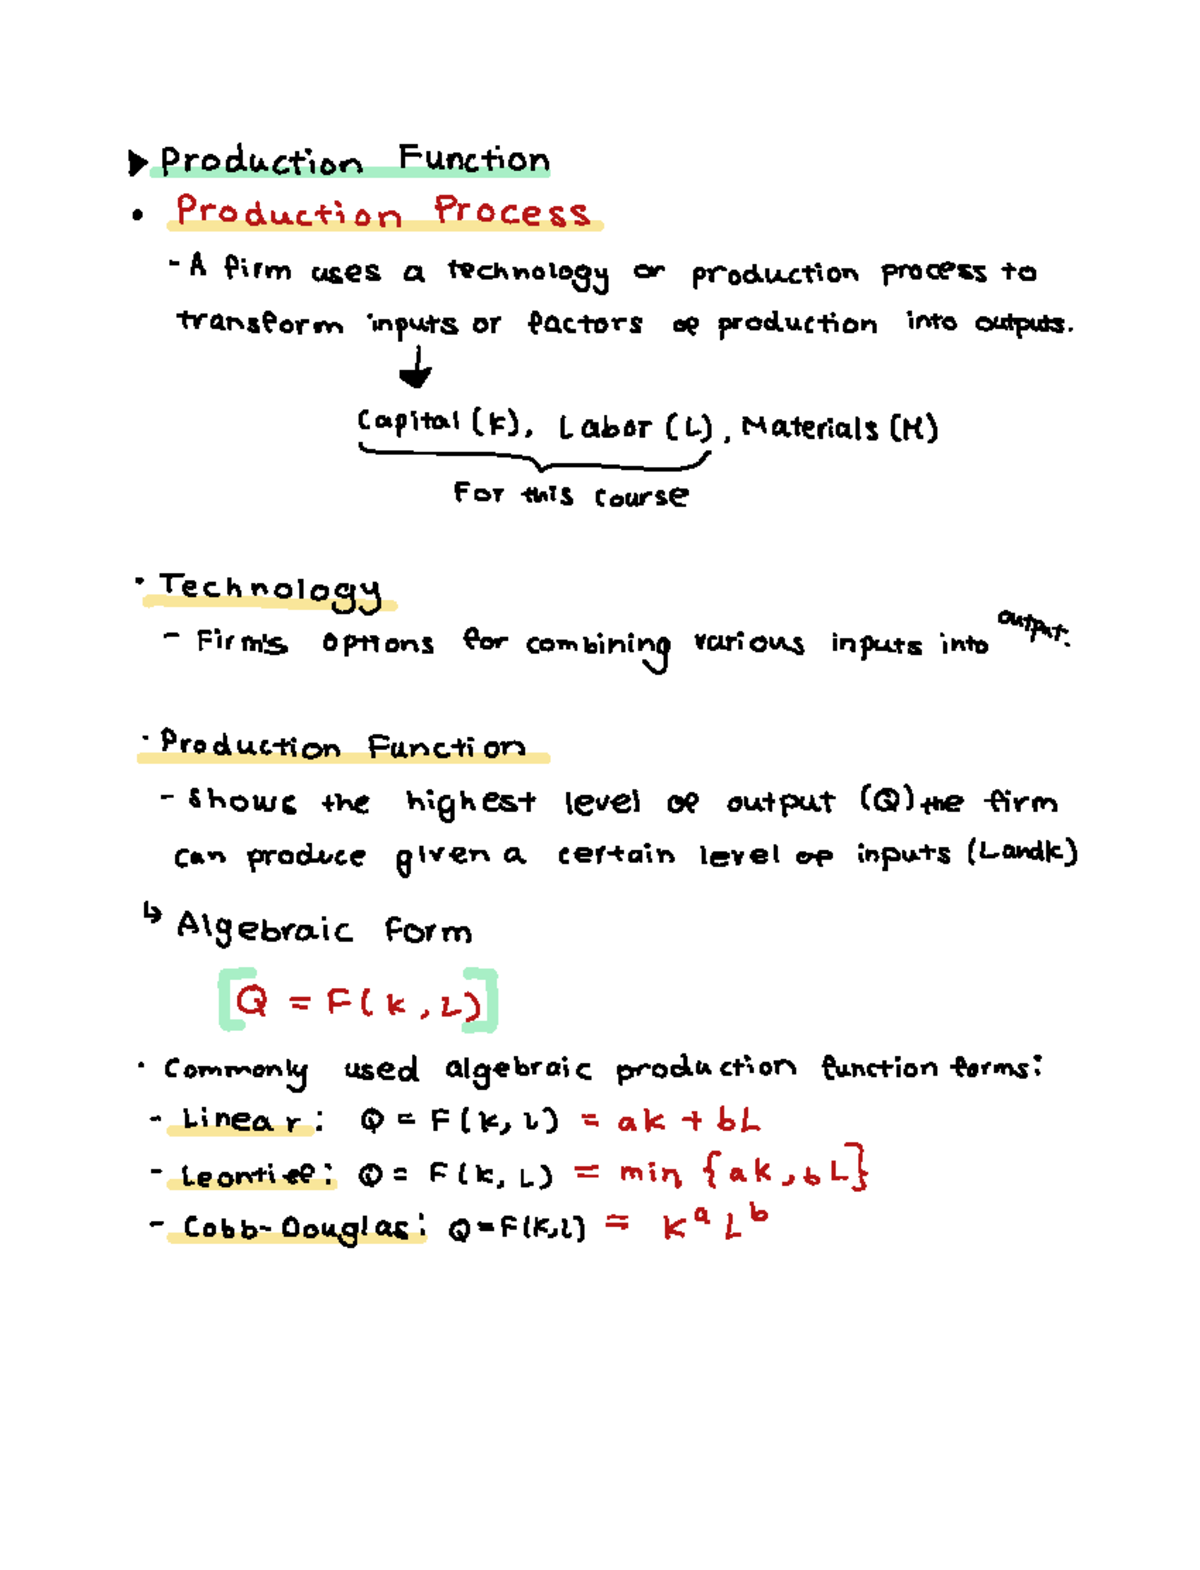 ▶ Production Function
• Production Process
- A firm uses a technology or production process to
transform inputs or factors of production into outputs.
↓
Capital (K), Labor (L), Materials (M)
For this course
• Technology
- Firm's options for combining various inputs into output.
• Production Function
- Shows the highest level of output (Q) the firm
can produce given a certain level of inputs (L and K)
↳ Algebraic Form
[Q = F(K, L)]
• Commonly used algebraic production function forms:
- Linear: Q = F(K, L) = aK + bL
- Leontief: Q = F(K, L) = min {aK, bL}
- Cobb-Douglas: Q = F(K, L) = K^a L^b